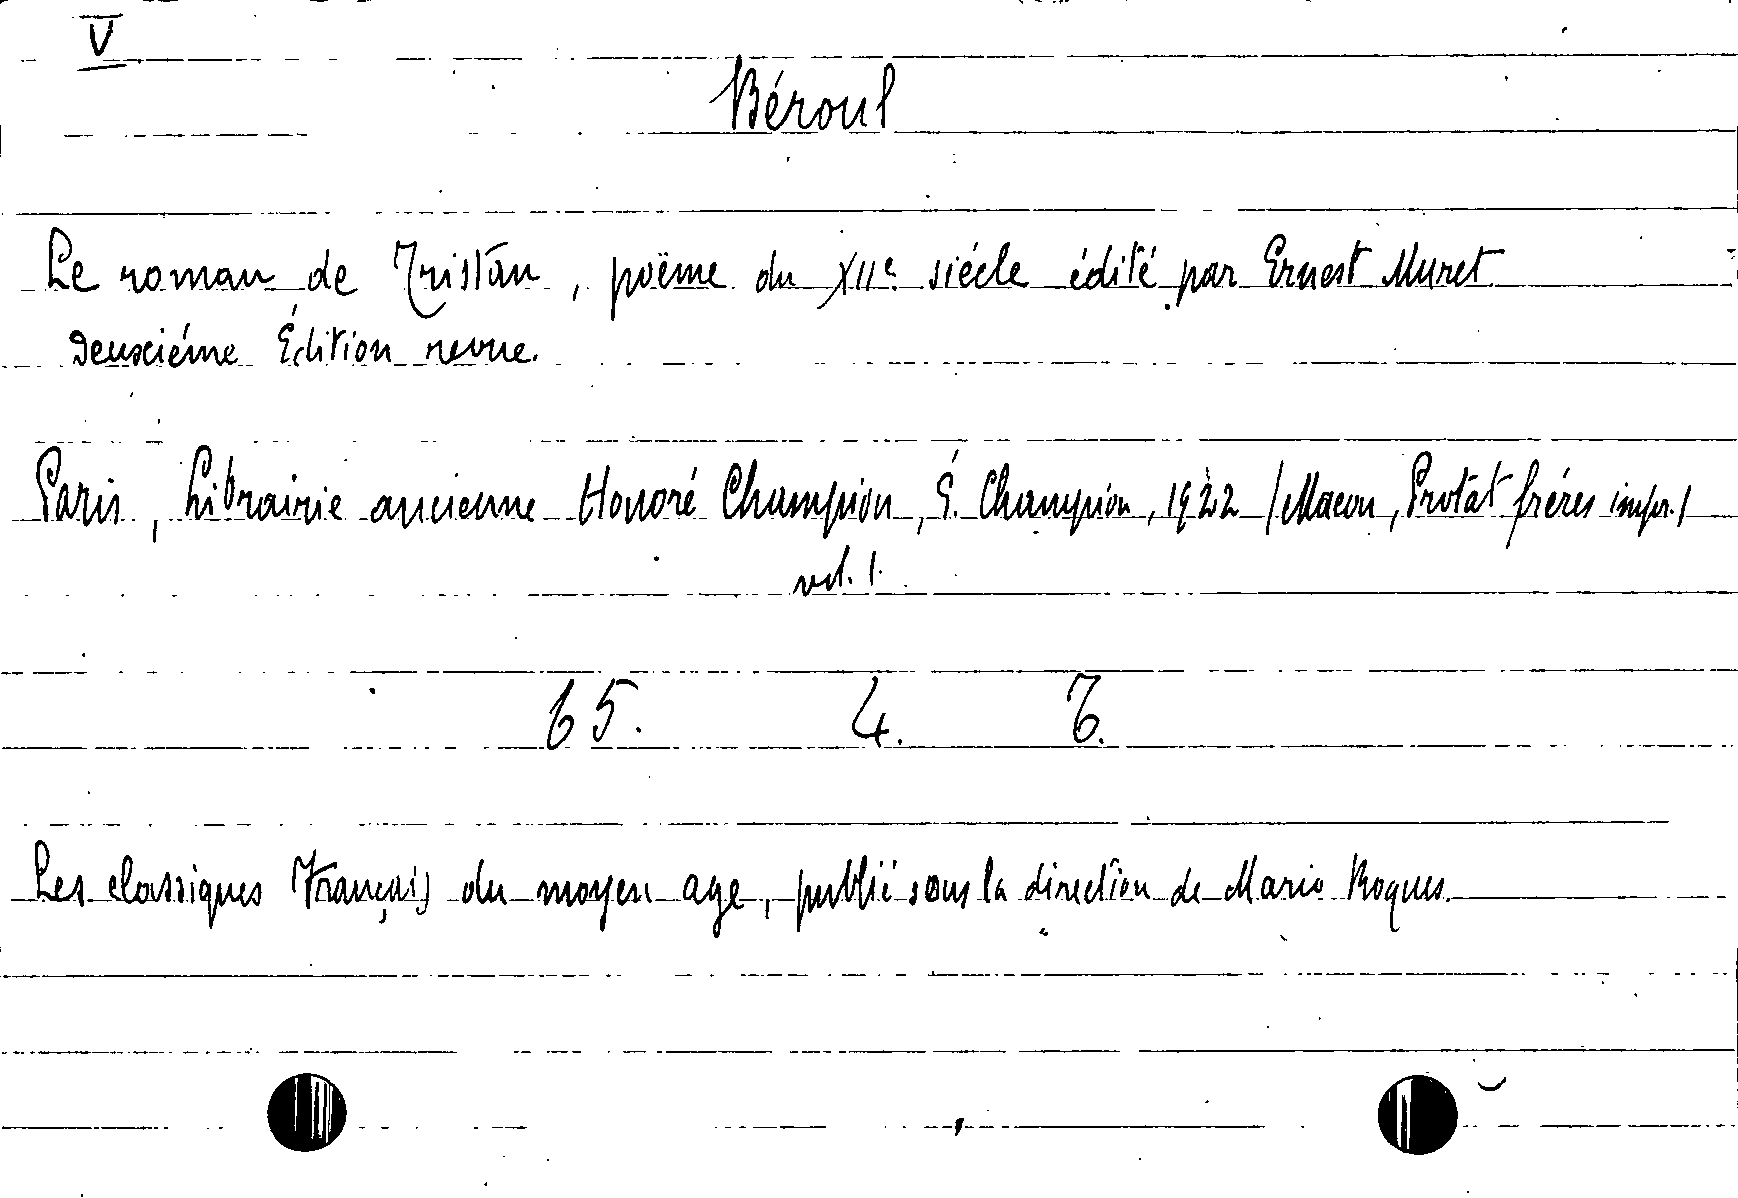 V
Béroul
Le roman de Tristan, poëme du XIIe siécle édité par Ernest Muret
Deuxiéme Édition revue.
Paris, Librairie ancienne Honoré Champion, É. Champion, 1922 /Macon, Protat fréres impr./
vol. 1.
65. 4. 6.
Les classiques Français du moyen age, publié sous la direction de Mario Roques.